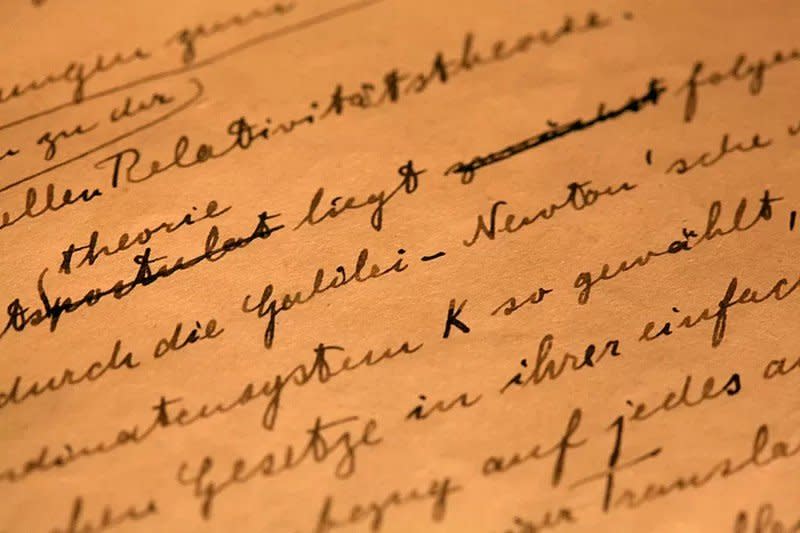 ungen zum
n zu der
ellen Relativitätstheorie.
theorie
ts postulat liegt zunächst folgen
durch die Galilei-Newton'sche
rdinatensystem K so gewählt,
chen Gesetze in ihrer einfach
bezug auf jedes a
Transla